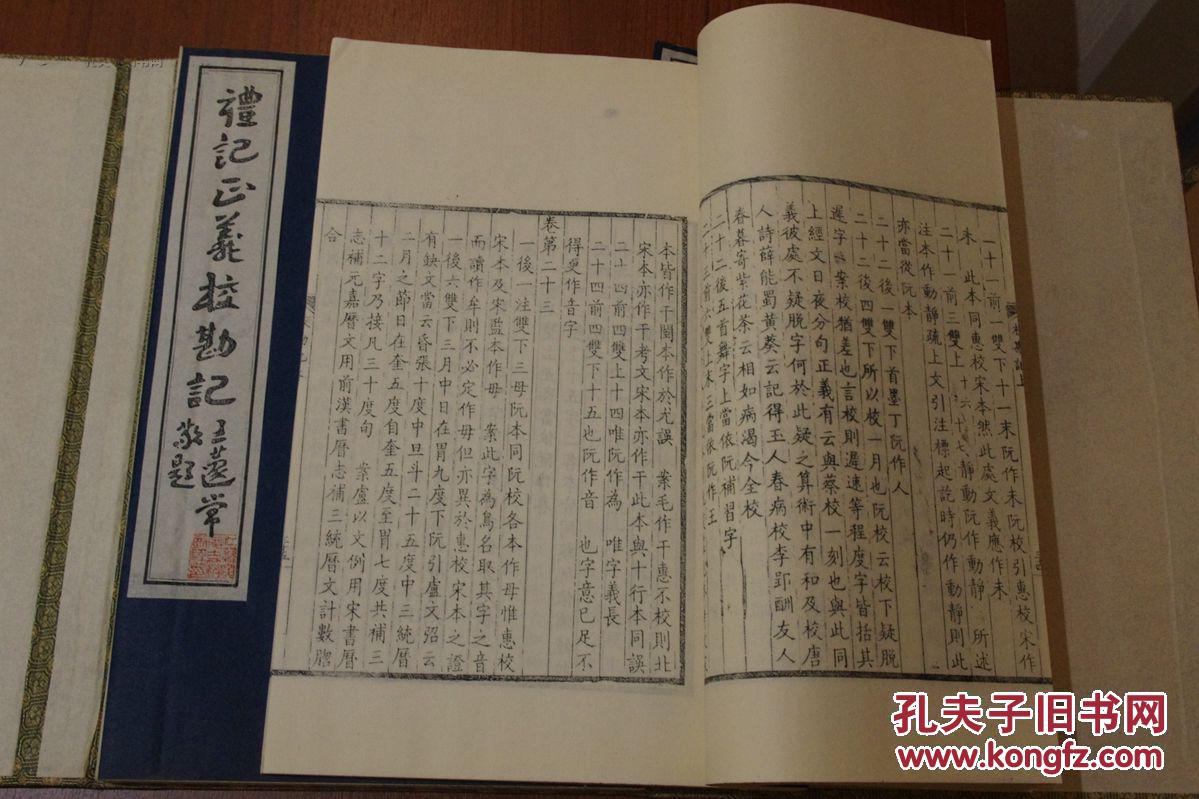 禮記正義校勘記
王蘧常
敬題
二十一前一雙下十一末阮作未阮校引惠校宋作
未 此本同惠校宋本然此處文義應作未
二十一前三雙上十六十七靜動阮作動靜 所述
注本作動靜疏上文引注標起訖時仍作動靜則此
亦當從阮本
二十二後一雙下首墨丁阮作人
二十二後四雙下所以校一月也阮校云校下疑脫
遲字 案校猶差也言校則遲速等程度字皆括其
上經文日夜分句正義有云與蔡校一刻也與此同
義彼處不疑脫字何於此疑之算術中有和及校唐
人詩薛能蜀黃葵云記得玉人春病校李郢酬友人
春暮寄紫花茶云相如病渴今全校
二十二後五首舞字上當依阮補習字
二十三前六雙上末三當依阮作王
本皆作干閩本作於尤誤 案毛作干惠不校則北
宋本亦作干考文宋本亦作干此本與十行本同誤
二十四前四雙上十四唯阮作為 唯字義長
二十四前四雙下十五也阮作音 也字意已足不
得更作音字
卷第二十三
一後一注雙下三母阮本同阮校各本作毋惟惠校
宋本及宋監本作母 案此字為鳥名取其字之音
而讀作牟則不必定作毋但亦異於惠校宋本之證
一後六雙下三月中日在胃九度下阮引盧文弨云
有缺文當云昏張十度中旦斗二十五度中三統曆
二月之節日在奎五度自奎五度至胃七度共補三
十二字乃接凡三十度句 案盧以文例用宋書曆
志補元嘉曆文用前漢書曆志補三統曆文計數膽
合
孔夫子旧书网
www.kongfz.com